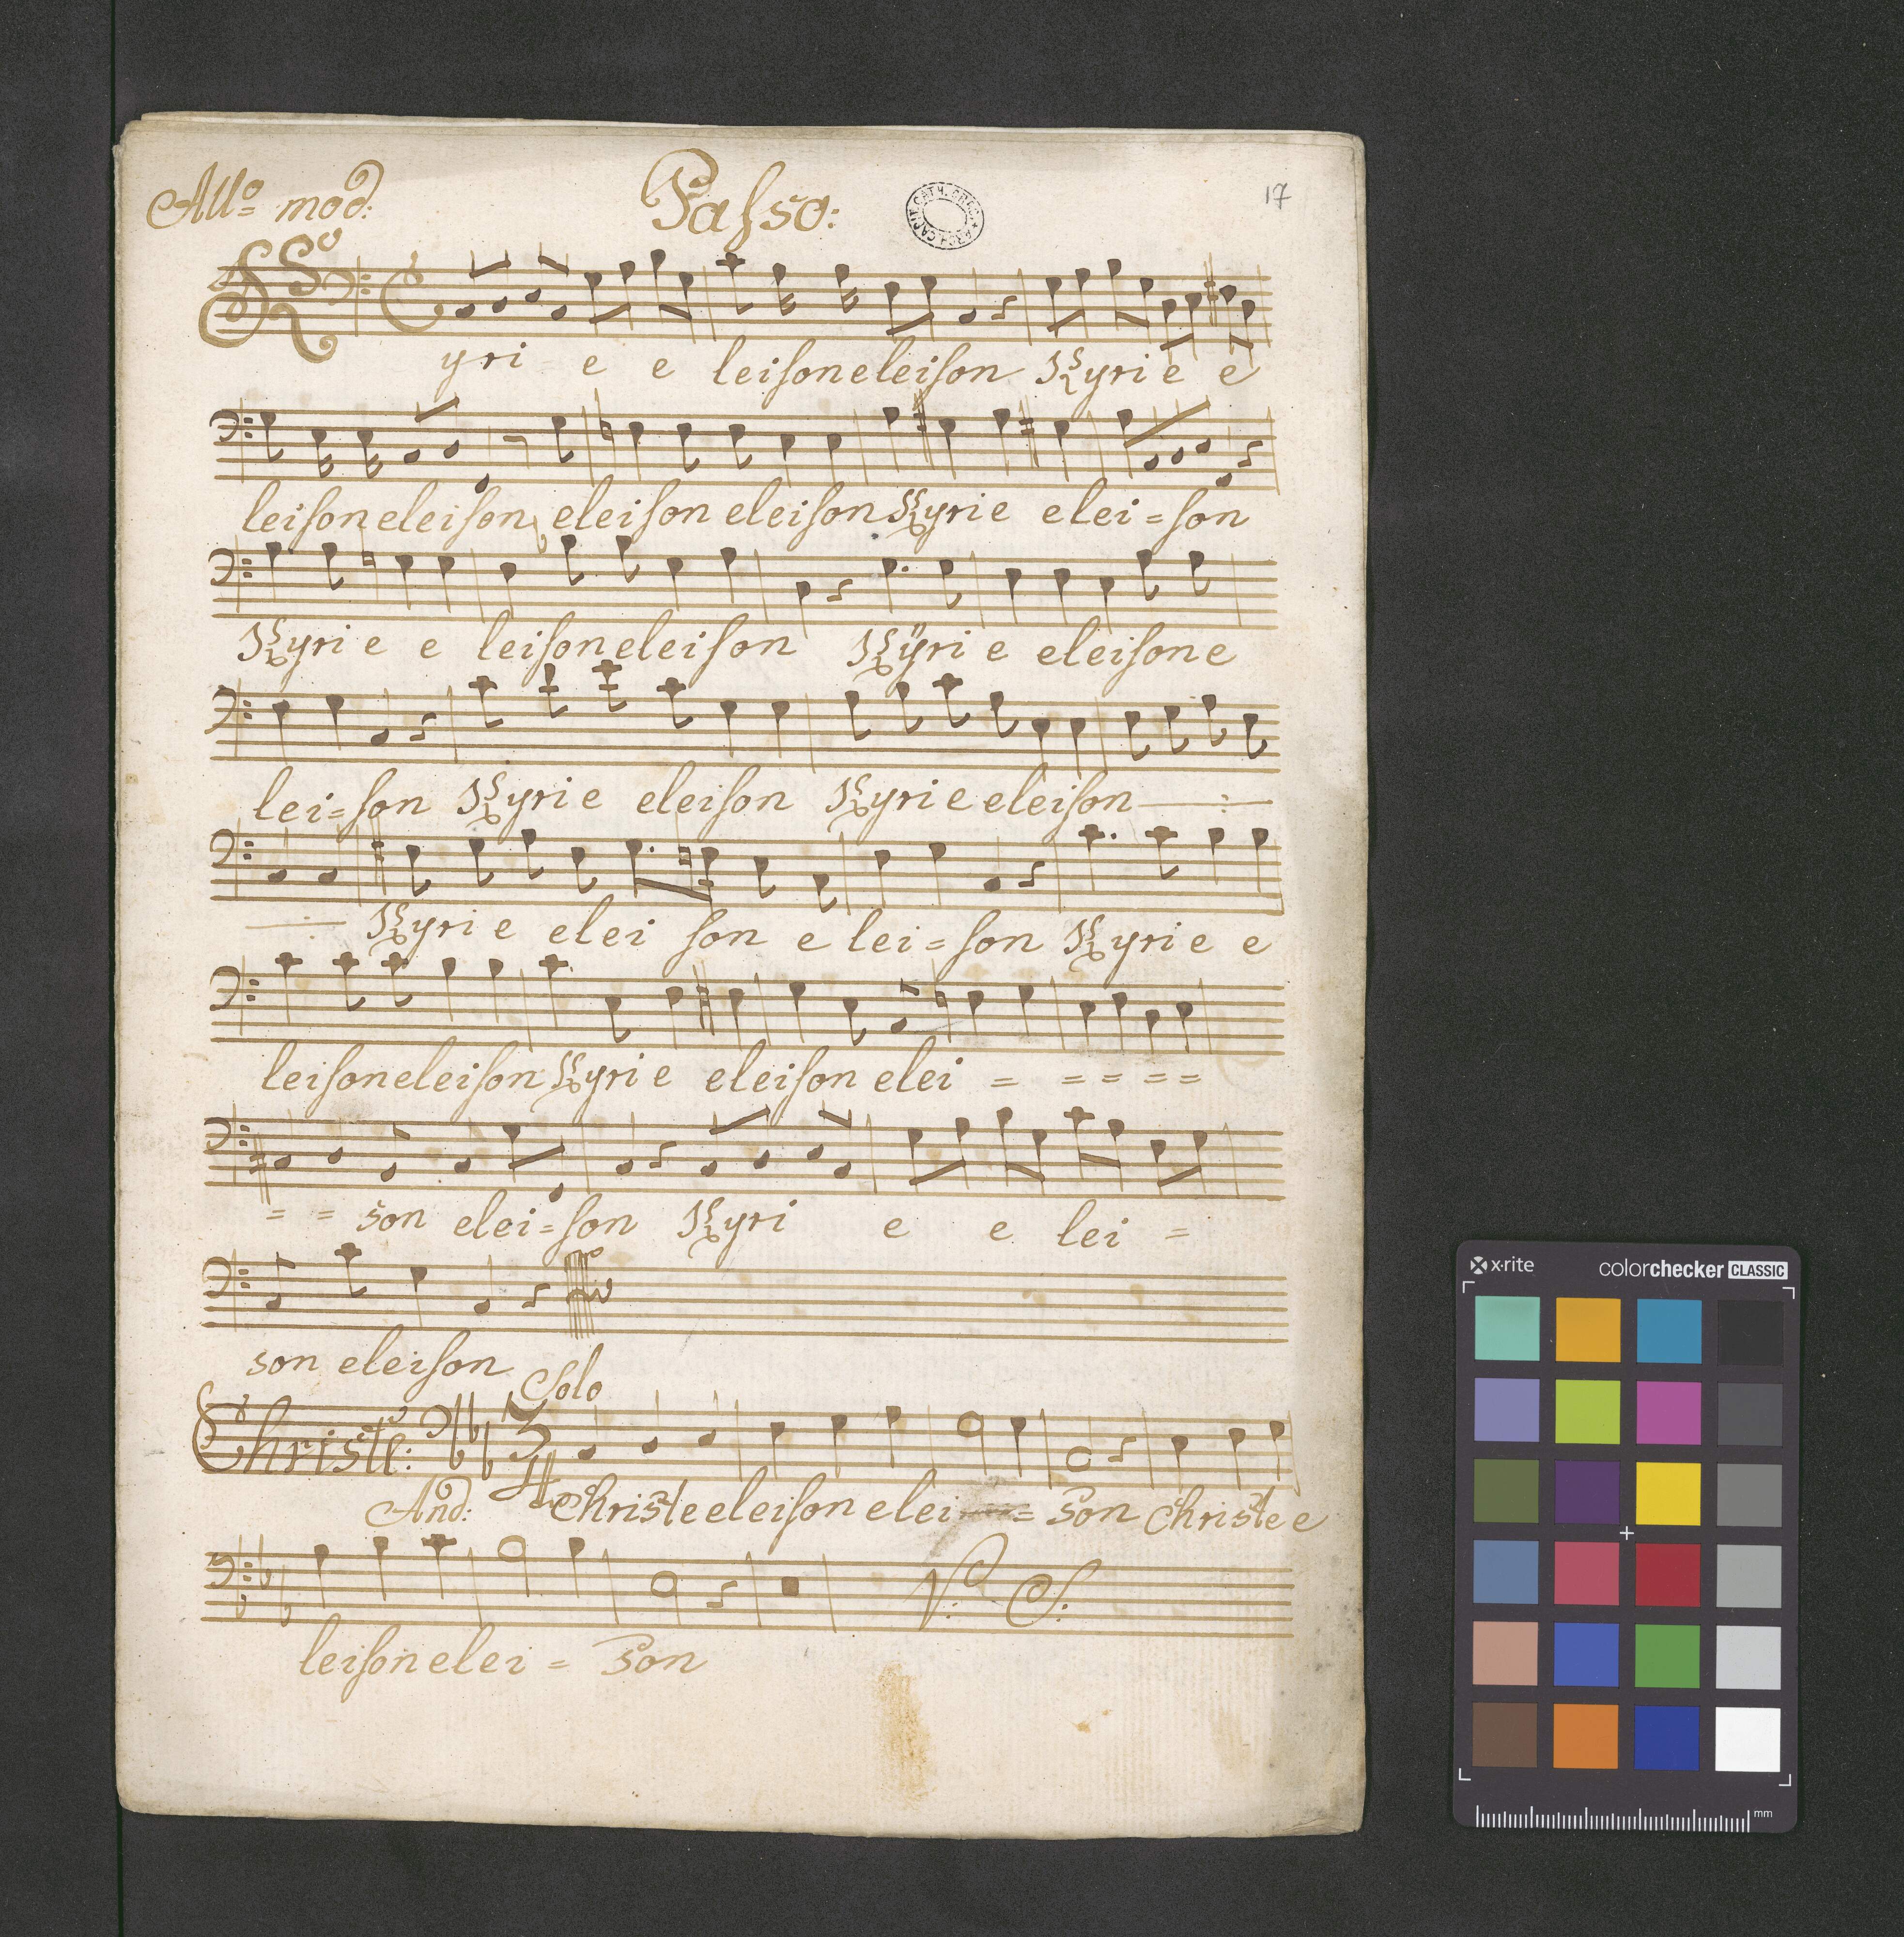 Allo mod: Basso: 17
Kyri e e leiſon eleiſon Kyri e e
leiſon eleiſon eleiſon eleiſon Kyrie elei = ſon
Kyri e e leiſon eleiſon Kÿri e eleiſon e
lei = ſon Kyri e eleiſon Kyri e eleiſon
Kyri e elei ſon e lei = ſon Kyri e e
leiſon eleiſon Kyri e eleiſon elei = = = = =
= = son elei = ſon Kyri e e lei =
son eleiſon
Solo
Christe: 3/4
And: Christe eleiſon elei = son Christe e
V: S:
leiſon elei = son
x·rite colorchecker CLASSIC
mm